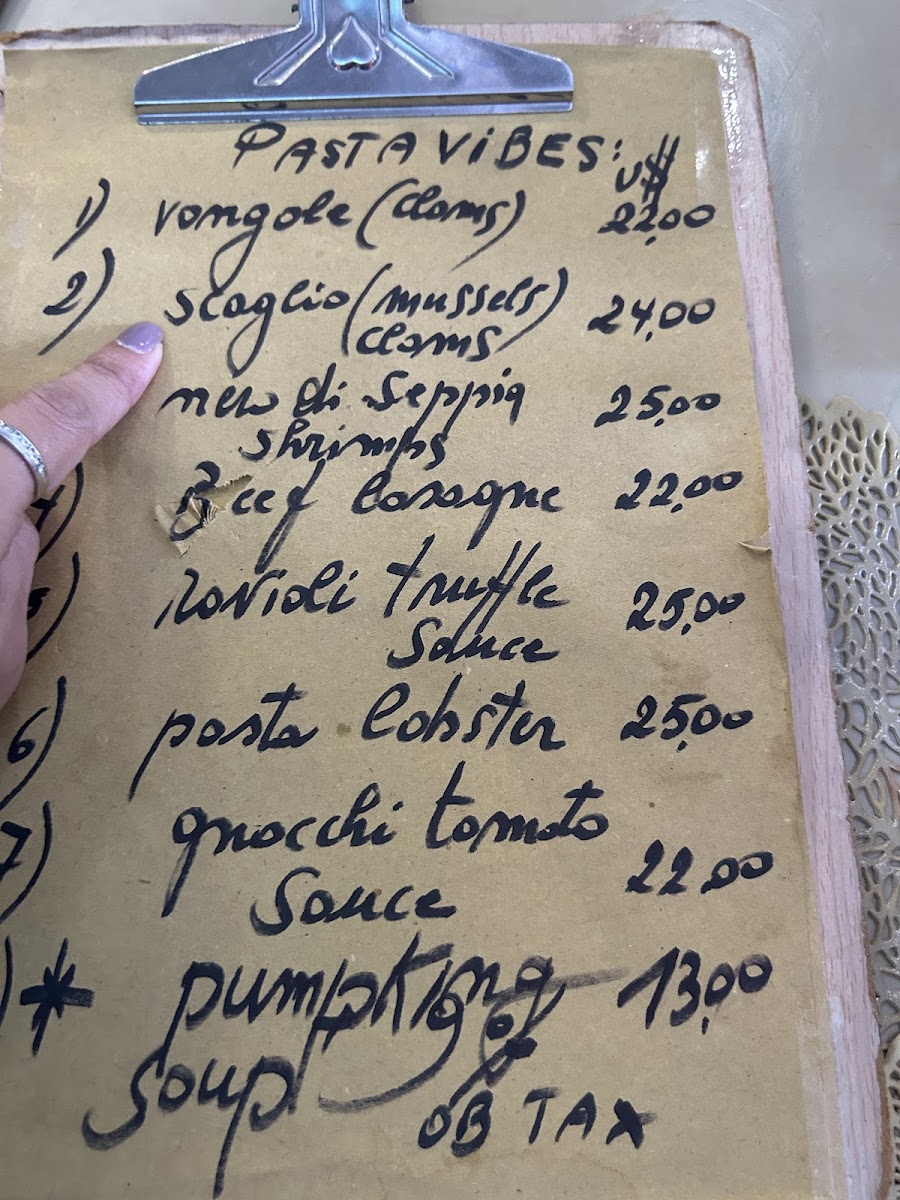 PASTA VIBES:
U$
1) vongole (clams) 22,00
2) scoglio (mussels) 24,00
clams
nero di seppia 25,00
shrimps
4) Beef lasagne 22,00
5) Ravioli truffle 25,00
Sauce
6) pasta lobster 25,00
7) gnocchi tomato
Sauce 22,00
) * pumpking 13,00
Soup
OB TAX